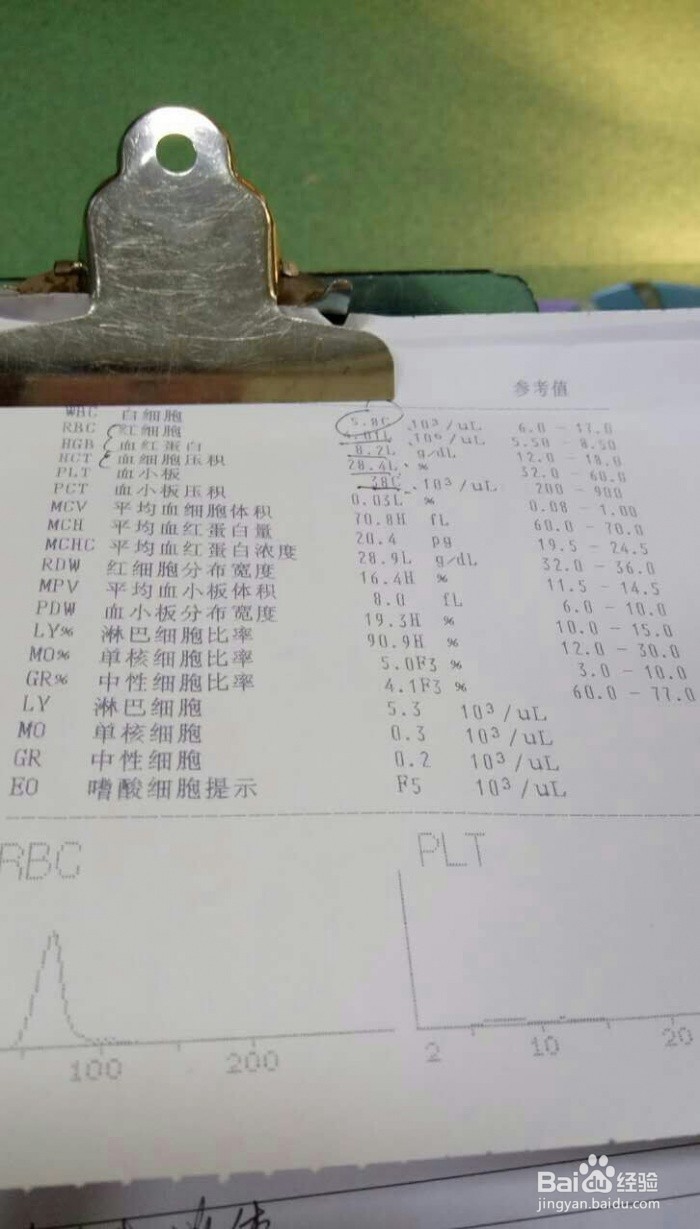 参考值
WBC 白细胞 5.8C 10³/uL 6.0 - 17.0
RBC 红细胞 4.01L 10⁶/uL 5.50 - 8.50
HGB 血红蛋白 8.2L g/dL 12.0 - 18.0
HCT 血细胞压积 28.4L % 32.0 - 60.0
PLT 血小板 38C 10³/uL 200 - 900
PCT 血小板压积 0.03L % 0.08 - 1.00
MCV 平均血细胞体积 70.8H fL 60.0 - 70.0
MCH 平均血红蛋白量 20.4 pg 19.5 - 24.5
MCHC 平均血红蛋白浓度 28.9L g/dL 32.0 - 36.0
RDW 红细胞分布宽度 16.4H % 11.5 - 14.5
MPV 平均血小板体积 8.0 fL 6.0 - 10.0
PDW 血小板分布宽度 19.3H % 10.0 - 15.0
LY% 淋巴细胞比率 90.9H % 12.0 - 30.0
MO% 单核细胞比率 5.0F3 % 3.0 - 10.0
GR% 中性细胞比率 4.1F3 % 60.0 - 77.0
LY 淋巴细胞 5.3 10³/uL
MO 单核细胞 0.3 10³/uL
GR 中性细胞 0.2 10³/uL
EO 嗜酸细胞提示 F5 10³/uL
RBC PLT
100 200 2 10 20
Baidu经验
jingyan.baidu.com